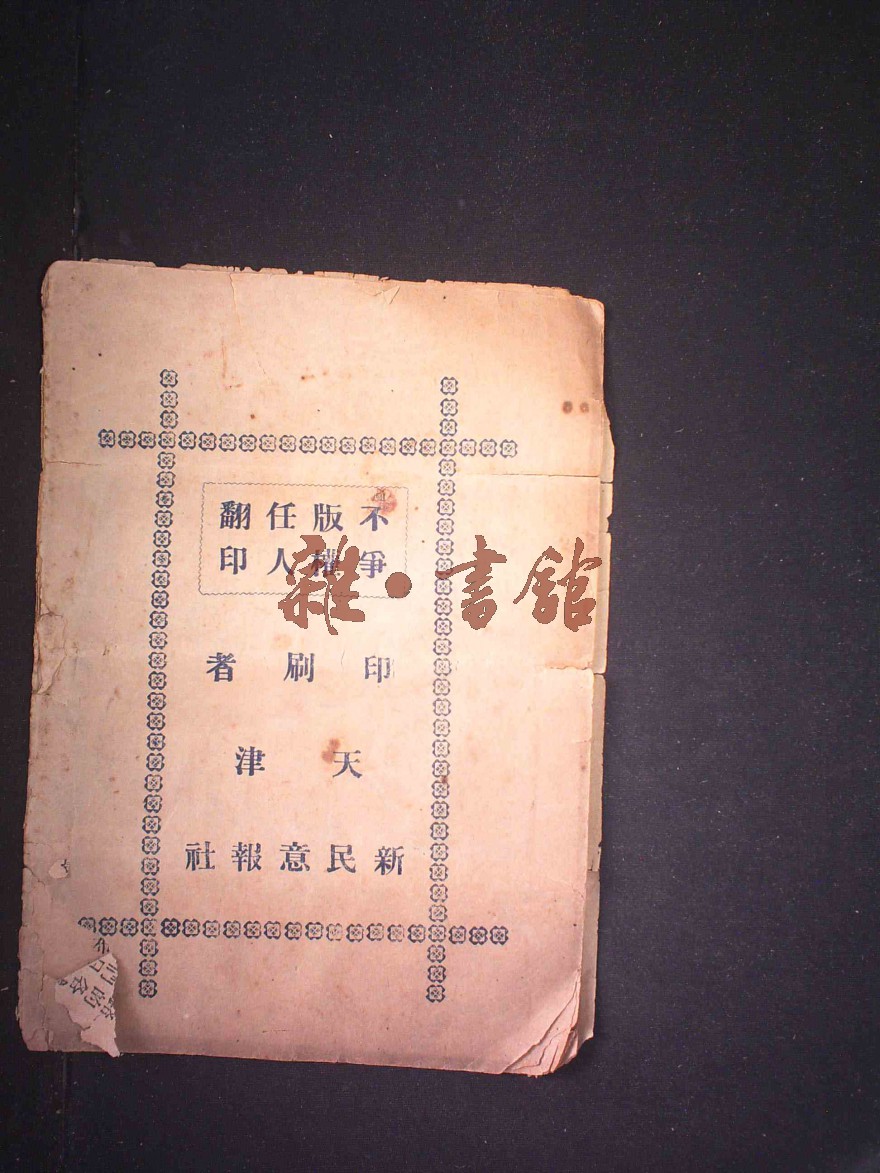 不爭
版權
任人
翻印
雜·書館
印刷者
天津
新民意報社
們的